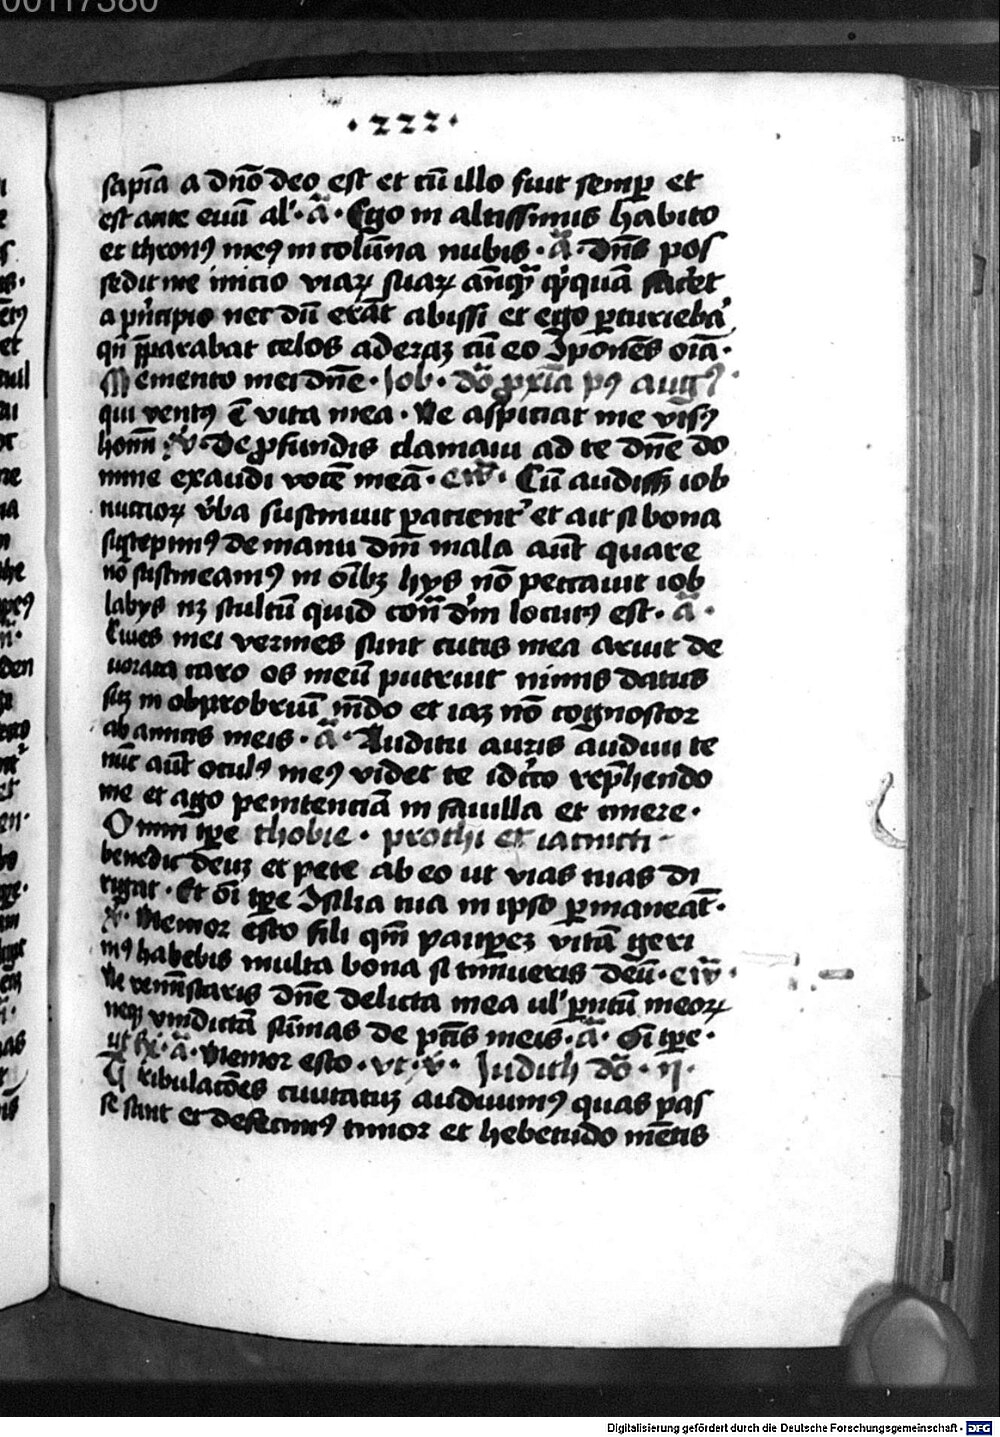 00117380
· 222 ·
sapīa a dnō deo est et cū illo fuit semp et
est ante euū al'· ā · Ego in altissimis habito
et thronꝯ meꝯ in colūna nubis · ā · dn̄s pos
sedit me inicio viaꝝ suaꝝ an̄qͣ qͥcquā facet
a pͥncipio nec dū erāt abissi et ego pturiebaʳ
qn̄ ꝓparabat celos aderaꝫ cū eo ꝯponēs oīa ·
Memento mei dn̄e · Job · dō ꝓxīa pꝯ augꝰ ·
qui ventꝯ ē vita mea · Ne aspiciat me visꝯ
homī · v̄ · De ꝓfundis clamaui ad te dn̄e do
mine exaudi vocē meā · ew̄ · Cū audissꝫ iob
nuctioꝝ v̄ba sustinuit pacientʳ et ait si bona
suscepimꝯ de manu dn̄i mala aūt quare
nō sustineamꝯ in oībꝫ hys nō peccauit iob
labys nꝫ stultū quid cont̄ dm̄ locutꝯ est · ā ·
Ciues mei vermes sunt cutis mea aruit de
uorata caro os meū putruit nimis datus
suꝫ in obprobriū mūdo et iaꝫ nō cognoscor
ab amicis meis · ā · Auditu auris audiui te
nūc aūt oculꝯ meꝯ videt te idcͥco rep̄hendo
me et ago penitenciā in fauilla et cinere ·
Omni tp̄e thobie · prothi et iacincti ·
benedic deuꝫ et pete ab eo ut vias tuas di
rigat · Et oī tp̄e ꝯsilia tua in ipso pmaneāt ·
v̄ · Memor esto fili qm̄ paupeꝫ vitā geri
mꝯ habebis multa bona si timueris deū · ew̄ ·
Ne reminiscaris dn̄e delicta mea ul' pn̄tū meoꝝ
neqꝫ vindictā sūmas de pctīs meis · ā · oī tp̄e ·
ut · ā · Memor esto · vt · v̄ · Judith dō · ij ·
Tribulacōes ciuitatuꝫ audiuimꝯ quas pas
se sunt et defecimꝯ timor et hebetudo mētis
Digitalisierung gefördert durch die Deutsche Forschungsgemeinschaft · DFG